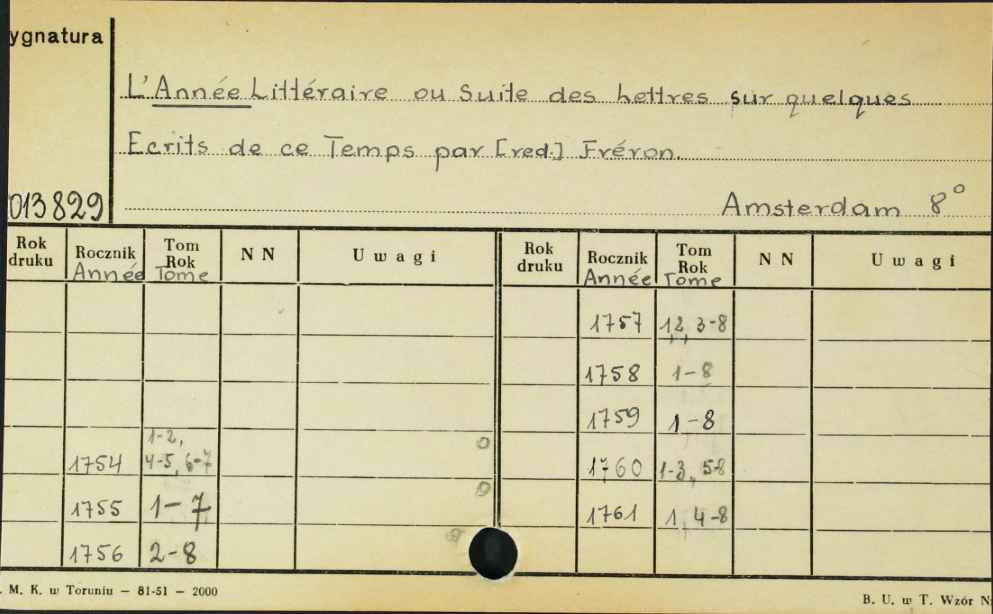 ygnatura
L'Année Littéraire ou Suite des Lettres sur quelques
Ecrits de ce Temps par [red.] Fréron.
013829
Amsterdam 8°
Rok druku Rocznik Année Tom Rok Tome N N Uwagi Rok druku Rocznik Année Tom Rok Tome N N Uwagi
1757 1,2, 3-8
1758 1-8
1759 1-8
1754 1-2, 4-5, 6-7 1760 1-3, 5-8
1755 1-7 1761 1, 4-8
1756 2-8
. M. K. w Toruniu — 81-51 — 2000
B. U. w T. Wzór N